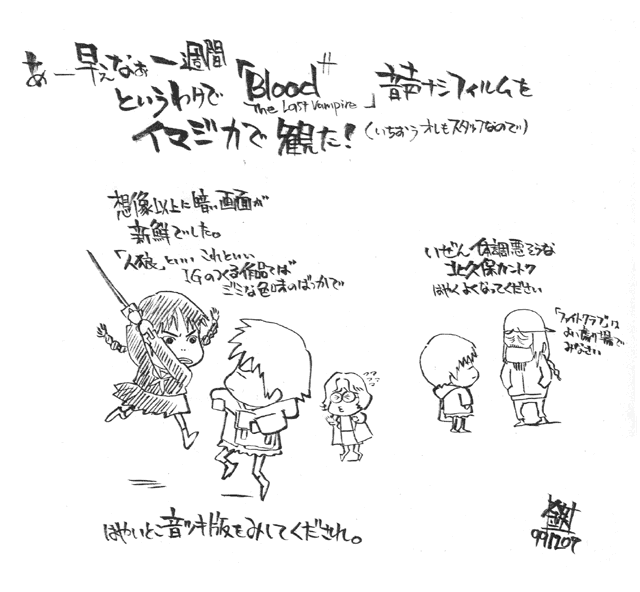 あー早えなぁ一週間
というわけで「Blood The Last Vampire」音声ナシフィルムを
イマジカで観た！（いちおうオレもスタッフなので）
想像以上に暗い画面が
新鮮でした。
「人狼」といい これといい
IGのつくる作品では
ジミな色味のばっかで
いぜん体調悪そうな
北久保カントク
はやくよくなってください
「ファイトクラブ」は
よい劇場で
みなさい
ワワワワ
はやいとこ音ツキ版をみしてくだされ。
991209